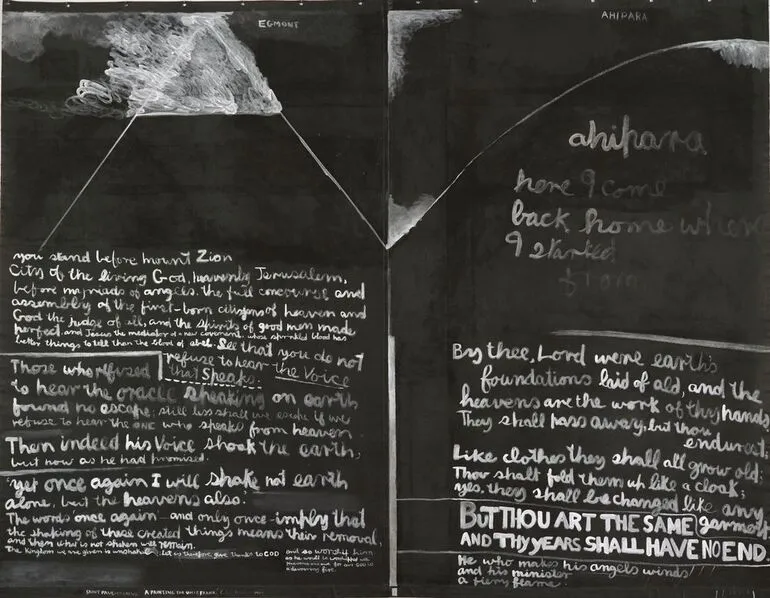 EGMONT
you stand before mount Zion
City of the living God, heavenly Jerusalem,
before myriads of angels, the full concourse and
assembly of the first-born citizens of heaven and
God the judge of all, and the spirits of good men made
perfect and Jesus the mediator of a new covenant, whose sprinkled blood has
better things to tell than the blood of abel. See that you do not
refuse to hear the Voice
that speaks.
Those who refused
to hear the oracle speaking on earth
found no escape; still less shall we escape if we
refuse to hear the one who speaks from heaven.
Then indeed his Voice shook the earth,
but now he had promised.
'yet once again I will shake not earth
alone, but the heavens also.'
The words once again - and only once - imply that
the shaking of these created things means their removal,
and then what is not shaken will remain.
The kingdom we are given is unshakable; let us therefore give thanks to GOD
and so worship him
as he would be worshipped with
reverence and awe for our GOD is
a devouring fire.
AHIPARA
ahipara
here I come
back home where
I started
from
By thee, Lord were earth's
foundations laid of old, and the
heavens are the work of thy hands
They shall pass away, but thou
endurest;
Like clothes they shall all grow old;
Thou shalt fold them up like a cloak;
yes, they shall be changed like any
garment
BUT THOU ART THE SAME
AND THY YEARS SHALL HAVE NO END.
He who makes his angels winds
and his minister
a fiery flame.